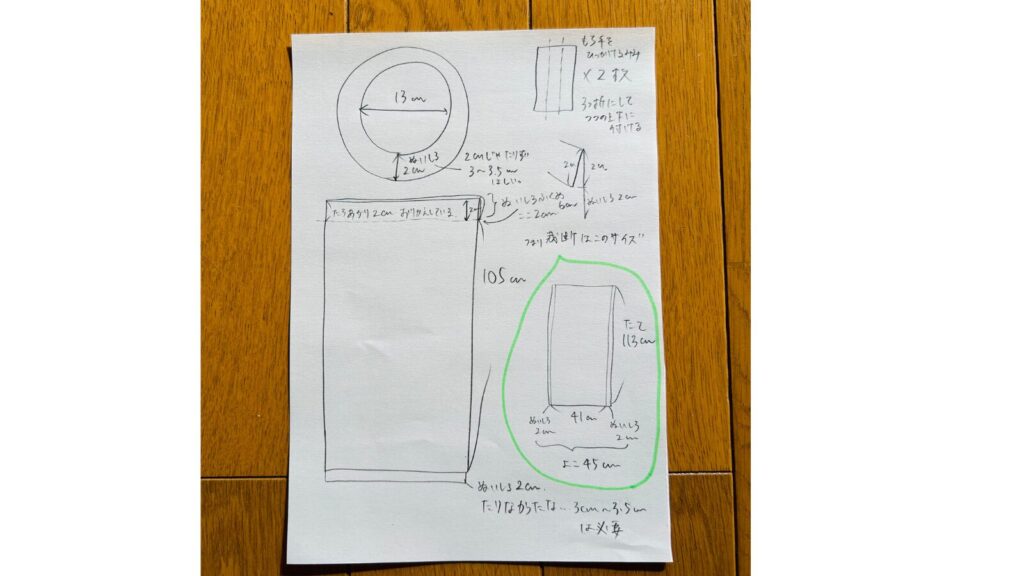 もち手を
ひっかけるみみ
×2枚
3つ折にして
つつの上下に
付ける
13cm
ぬいしろ
2cm
2cmじゃたりず
3〜3.5cm
ほしい。
2cm
2cm
ぬいしろ2cm
たちあがり2cm おりかえしている
2cm
ぬいしろふくめ
ここ2cm
つまり裁断はこのサイズ
105cm
たて
113cm
41cm
ぬいしろ
2cm
ぬいしろ
2cm
よこ45cm
ぬいしろ2cm.
たりなかったな‥3cm〜3.5cm
は必要